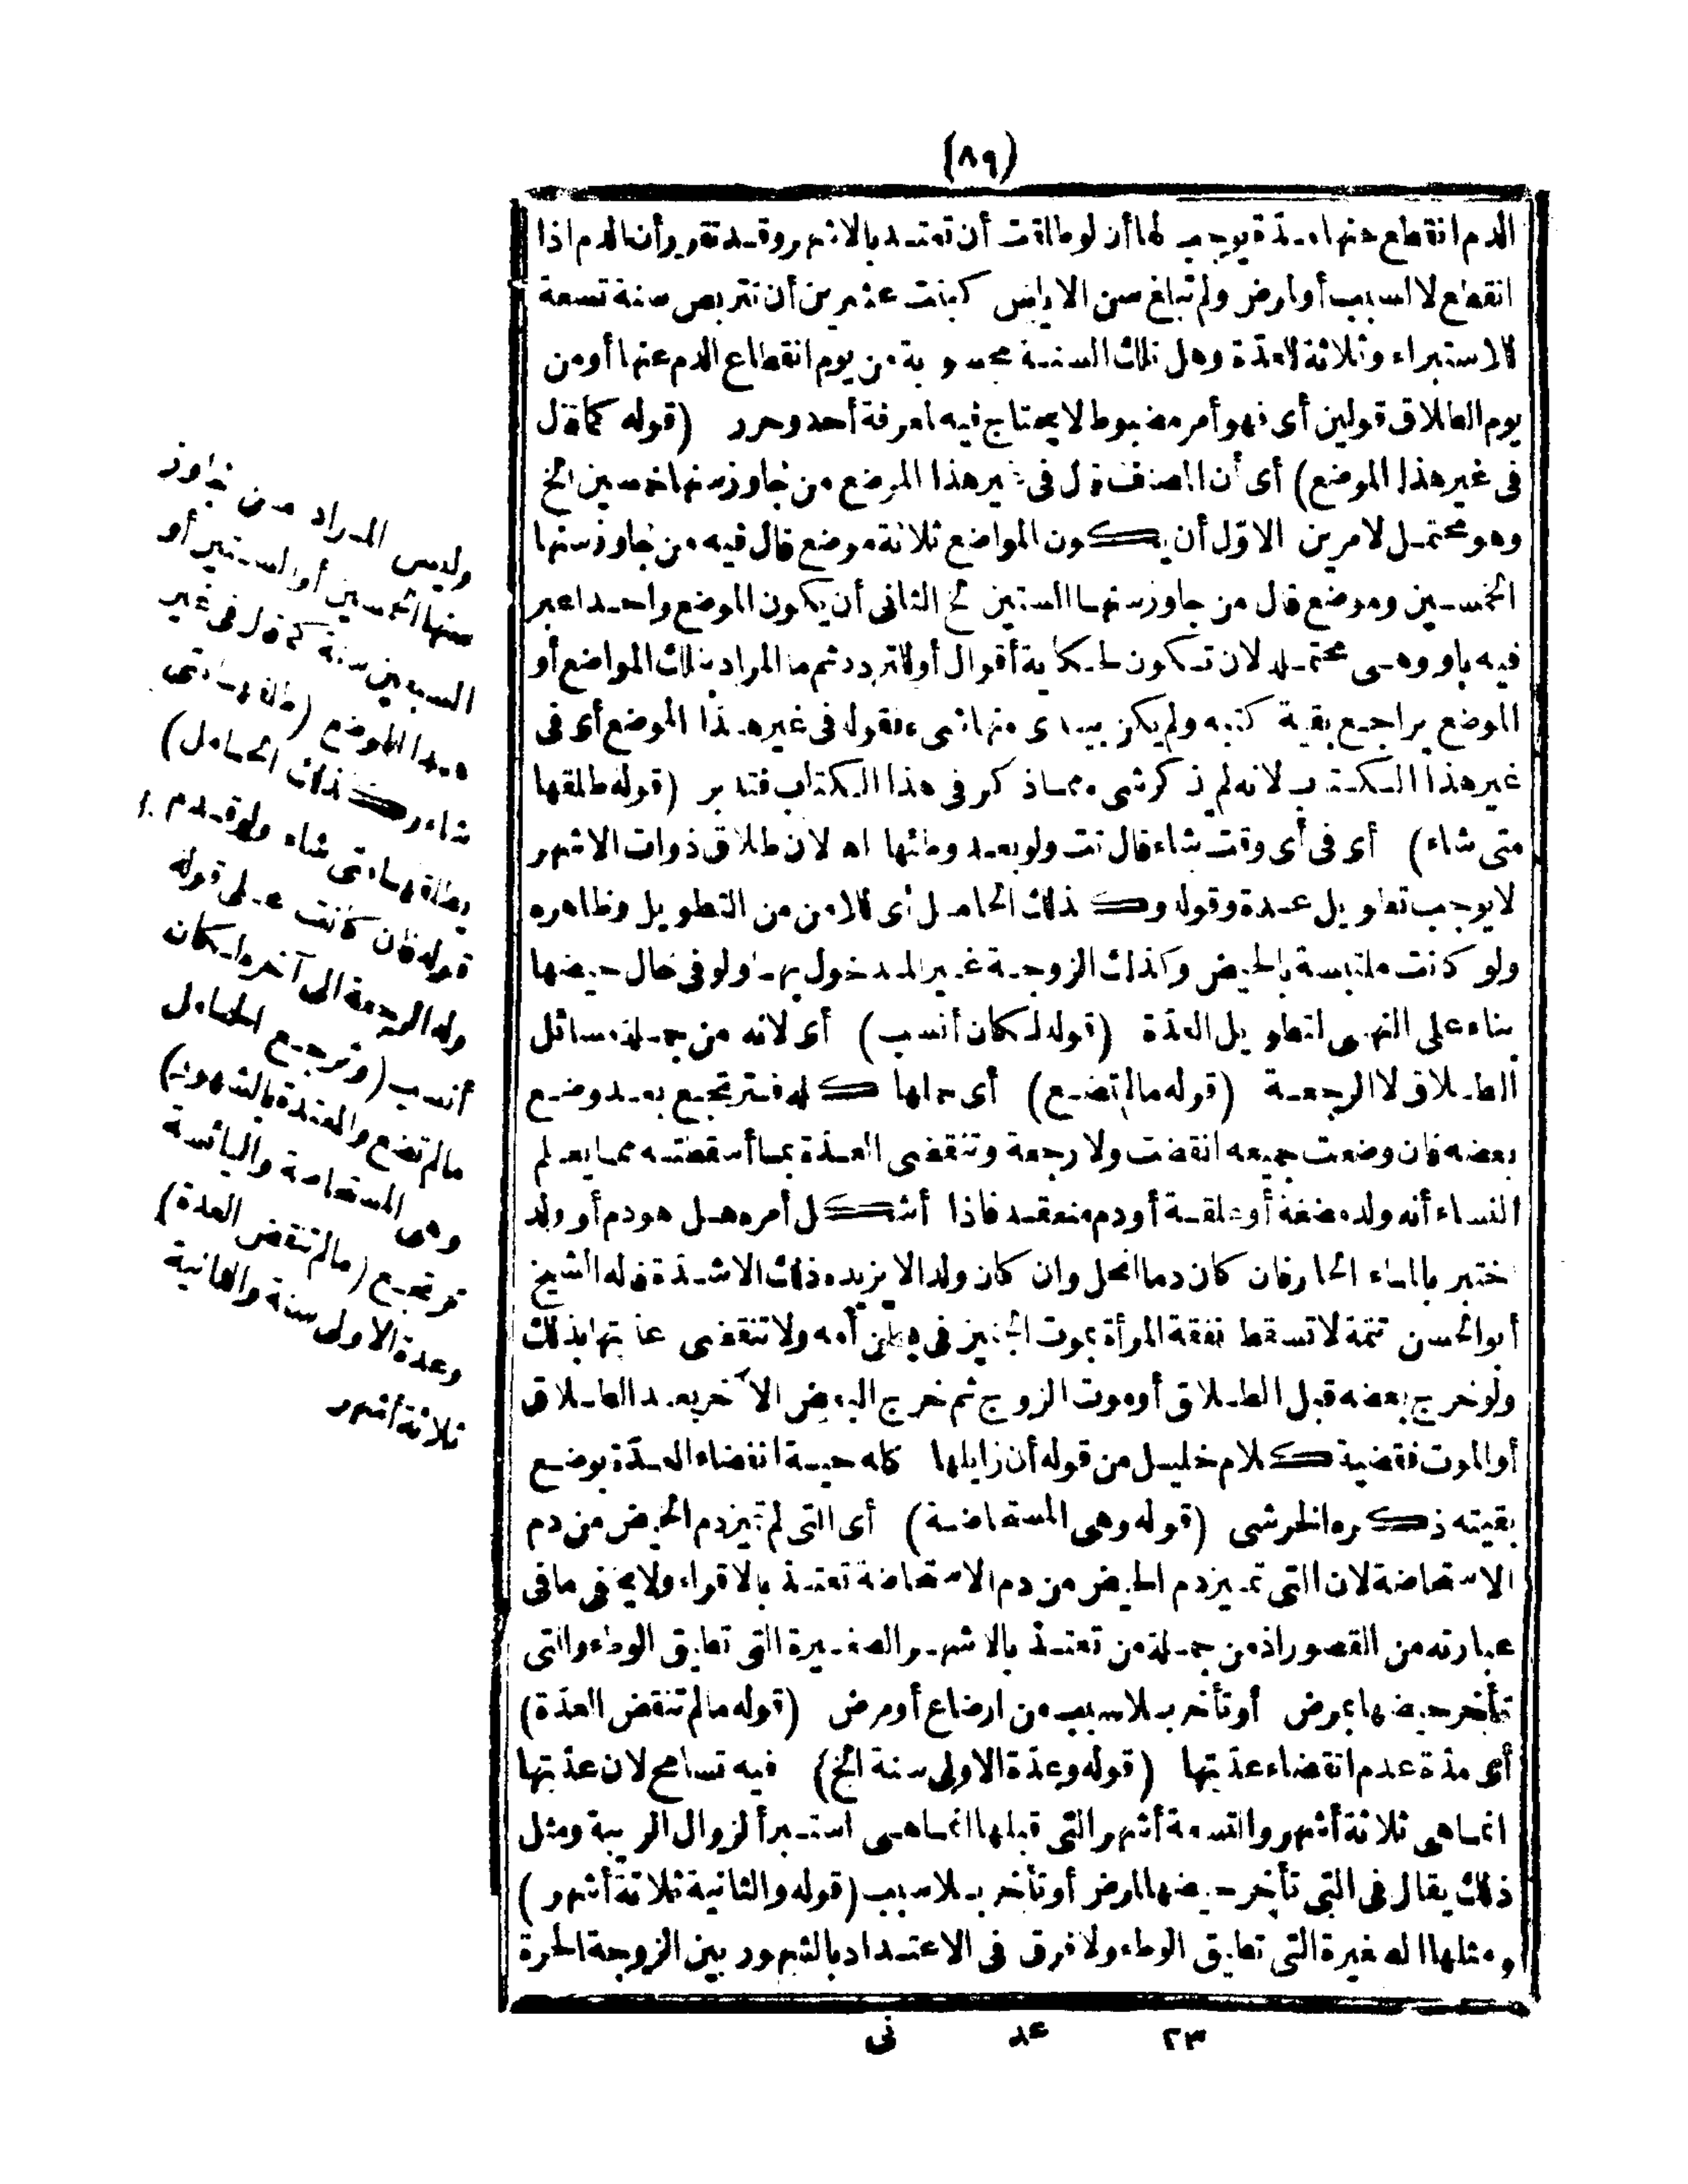 (٨٩)
الدم انقطع عنها مدة يوجب لها أن لو طلقت أن تعتد بالاشهر وقد تقرر أن الدم اذا
انقطع لا لسبب أو لمرض ولم تبلغ سن الاياس كبنت عشرين أن تتربص سنة تسعة
للاستبراء وثلاثة للعدة وهل تلك السنة محسوبة من يوم انقطاع الدم عنها أو من
يوم الطلاق قولين أى فهو أمر مضبوط لا يحتاج فيه لمعرفة أحد وحرر (قوله كما قال
فى غير هذا الموضع) أى أن المصنف قال فى غير هذا الموضع من جاوز سنها خمسين الخ
وهو محتمل لامرين الاول أن يكون المواضع ثلاثة موضع قال فيه من جاوز سنها
الخمسين وموضع قال من جاوز سنها الستين الخ الثانى أن يكون الموضع واحدا عبر
فيه باو وهى محتملة لان تكون لحكاية أقوال أو للتردد ثم ما المراد بتلك المواضع أو
الموضع يراجع بقية كتبه ولم يكن بيدى منها شىء فقوله فى غير هذا الموضع أى فى
غير هذا الكتاب لانه لم يذكر شى مما ذكر فى هذا الكتاب فتدبر (قوله طلقها
متى شاء) أى فى أى وقت شاء قال تت ولو بعد وطئها اه لان طلاق ذوات الاشهر
لا يوجب تطويل عدة وقوله وكذلك الحامل أى للامن من التطويل وظاهره
ولو كانت ملتبسة بالحيض وكذلك الزوجة غير المدخول بها ولو فى حال حيضها
بناء على النهى لتطويل العدة (قوله لكان أنسب) أى لانه من جملة مسائل
الطلاق لا الرجعة (قوله ما لم تضع) أى حملها كله فترتجع بعد وضع
بعضه فان وضعت جميعه انقضت ولا رجعة وتنقضى العدة بما أسقطته مما يعلم
النساء أنه ولد مضغة أو علقة أو دم منعقد فاذا أشكل أمره هل هو دم أو ولد
اختبر بالماء الحار فان كان دما انحل وان كان ولدا لا يزيده ذلك الا شدة قاله الشيخ
أبو الحسن تتمة لا تسقط نفقة المرأة بموت الجنين فى بطن أمه ولا تنقضى عدتها بذلك
ولو خرج بعضه قبل الطلاق أو موت الزوج ثم خرج البعض الآخر بعد الطلاق
أو الموت فقضية كلام خليل من قوله أن زايلها كله حسية انقضاء العدة بوضع
بقيته ذكره الخرشى (قوله وهى المستحاضة) أى التى لم تميز دم الحيض من دم
الاستحاضة لان التى تميز دم الحيض من دم الاستحاضة تعتد بالاقراء ولا يخفى ما فى
عبارته من القصور اذ من جملة من تعتد بالاشهر الصغيرة التى تطيق الوطء والتى
تأخر حيضها بمرض أو تأخر بلا سبب من ارضاع أو مرض (قوله ما لم تنقض العدة)
أى مدة عدم انقضاء عدتها (قوله وعدة الاولى سنة الخ) فيه تسامح لان عدتها
انما هى ثلاثة أشهر والتسعة أشهر التى قبلها انما هى استبرأ لزوال الريبة ومثل
ذلك يقال فى التى تأخر حيضها لمرض أو تأخر بلا سبب (قوله والثانية ثلاثة أشهر)
ومثلها الصغيرة التى تطيق الوطء ولا فرق فى الاعتداد بالشهور بين الزوجة الحرة
وليس المراد من جاوز
سنها الخمسين أو الستين أو
السبعين سنة كما قال فى غير
هذا الموضع (طلقها متى
شاء وكذلك الحامل)
يطلقها متى شاء ولو قدم
قوله فان كانت على قوله
وله الرجعة الى آخره لكان
أنسب (وترجع الحامل
ما لم تضع والمعتدة بالشهور)
وهى المستحاضة واليائسة
ترتجع (ما لم تنقض العدة)
وعدة الاولى سنة والثانية
ثلاثة أشهر
٢٣ عد نى